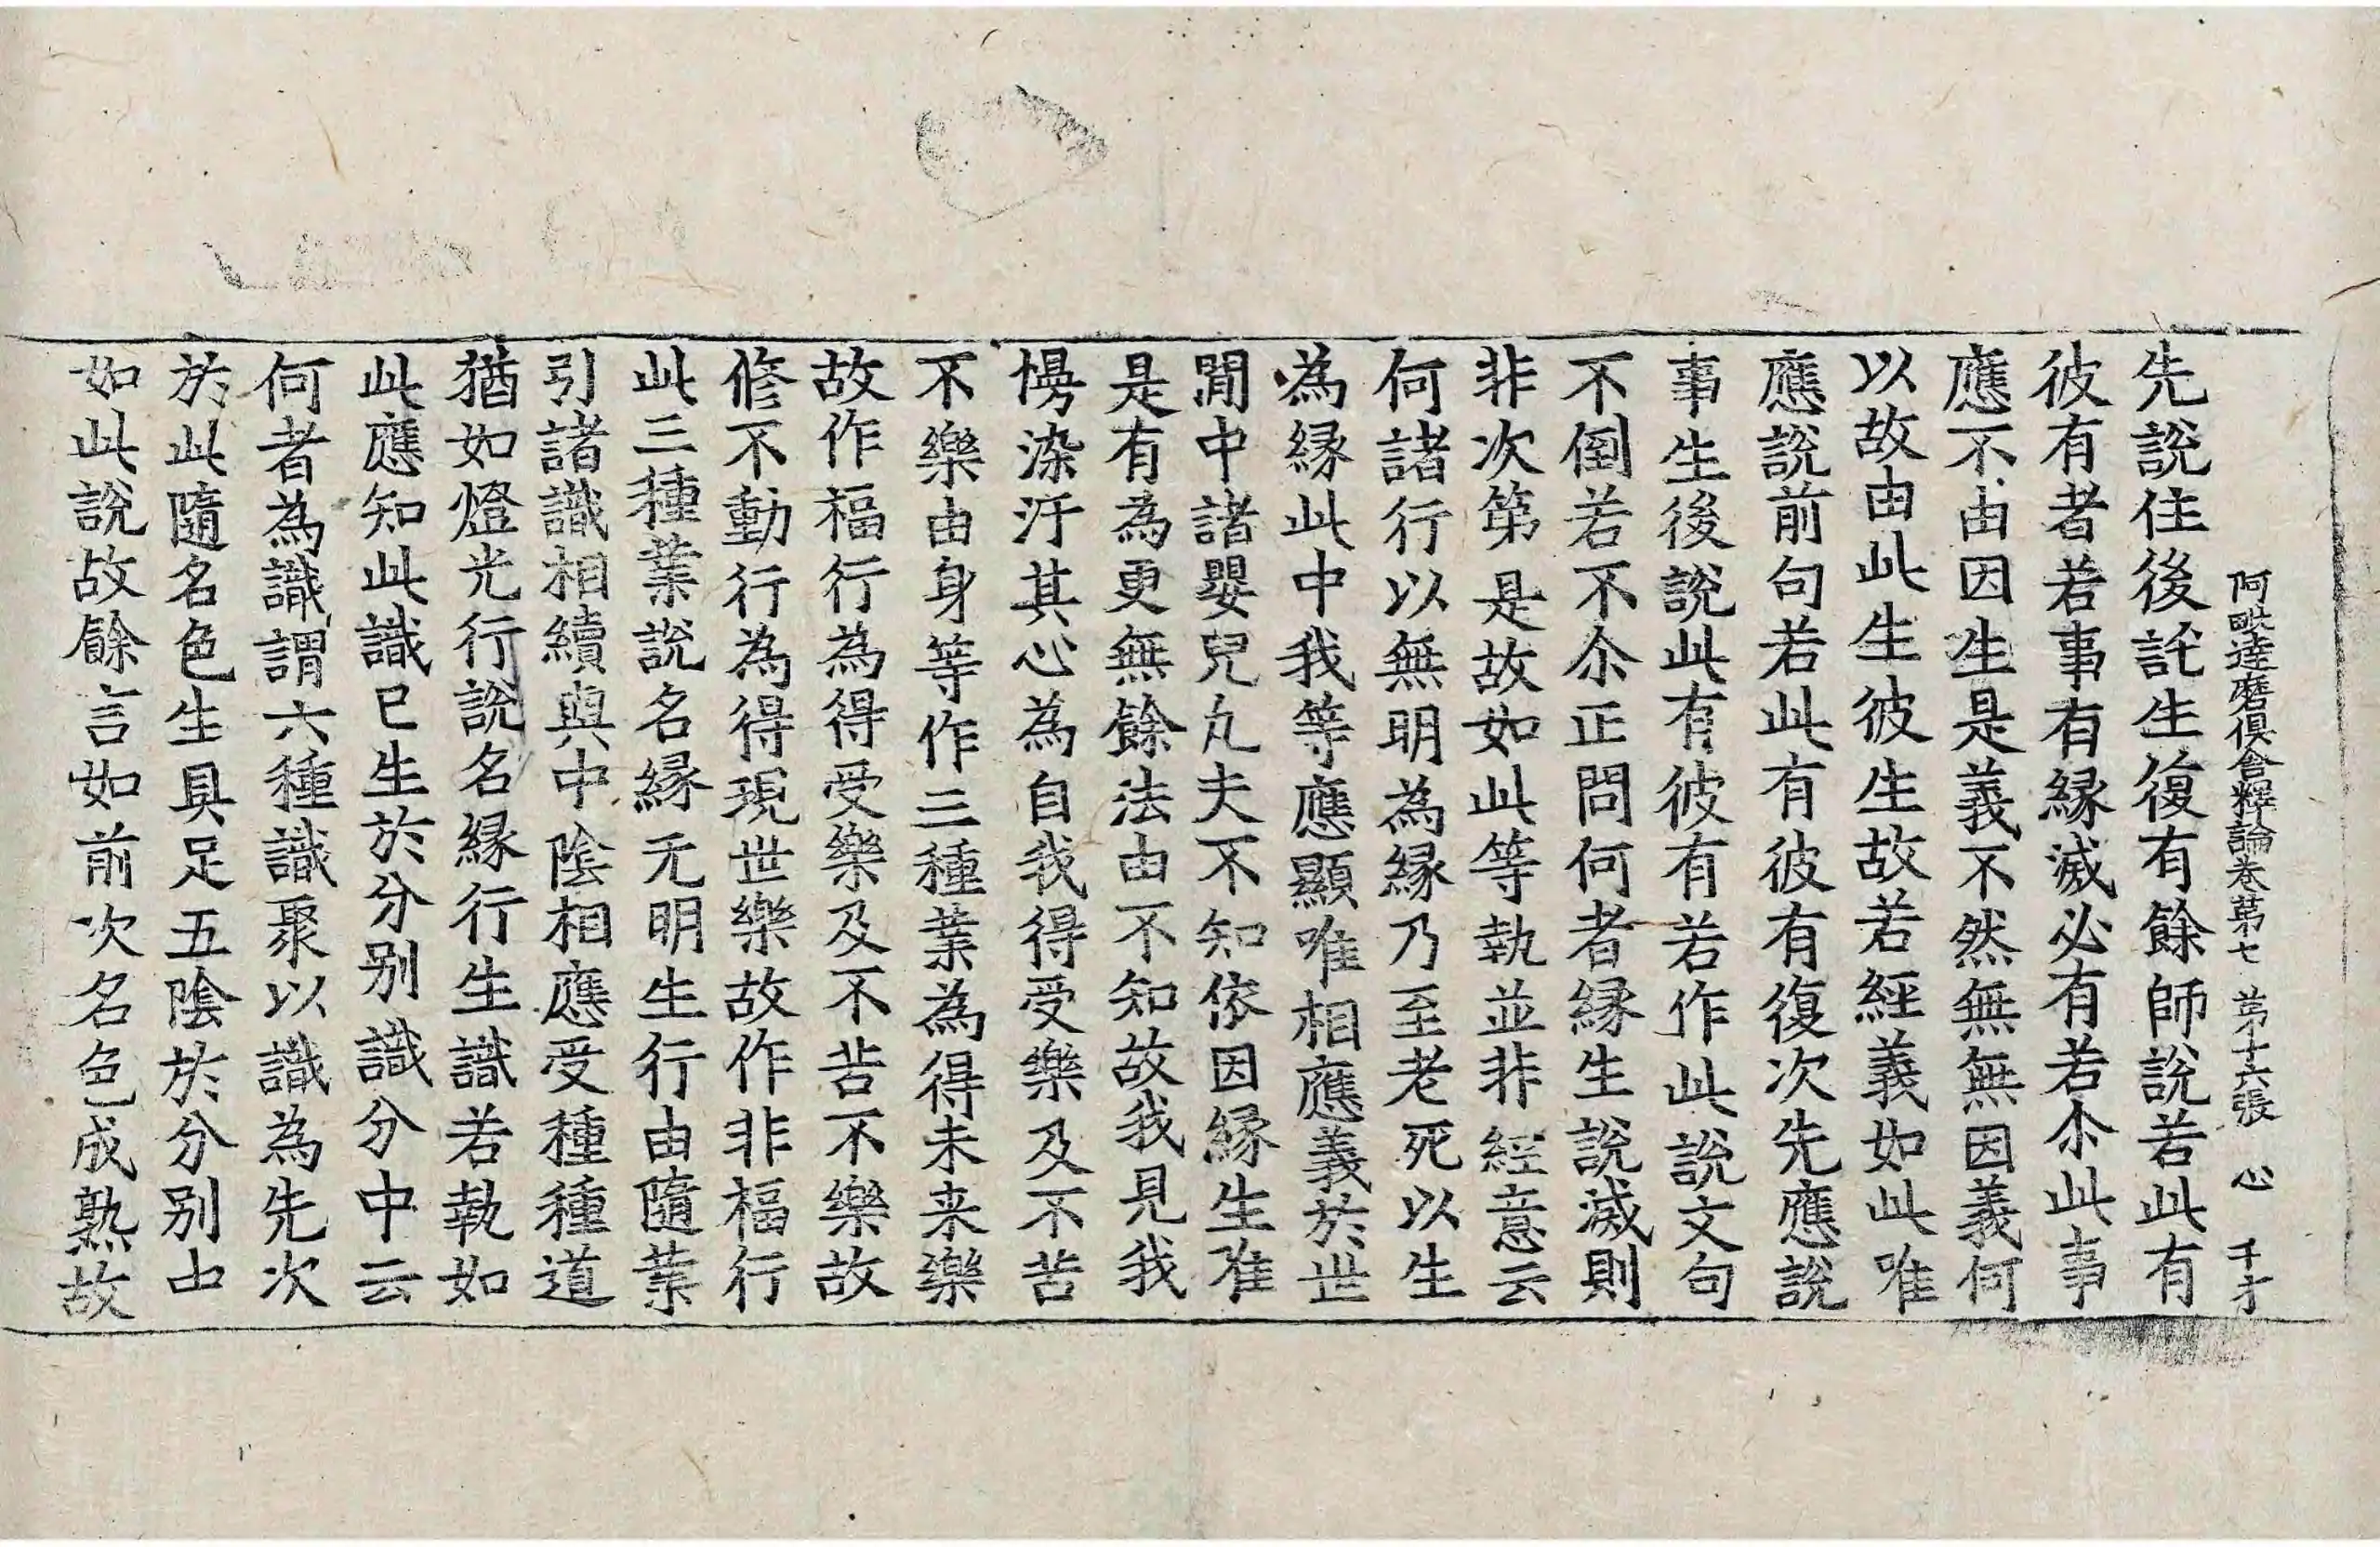 阿毗達磨俱舍釋論卷第七 第十六張 心 千才
先說住後託生復有餘師說若此有
彼有者若事有緣滅必有若尒此事
應不由因生是義不然無無因義何
以故由此生彼生故若經義如此唯
應說前句若此有彼有復次先應說
事生後說此有彼有若作此說文句
不倒若不尒正問何者緣生說滅則
非次第是故如此等執並非經意云
何諸行以無明為緣乃至老死以生
為緣此中我等應顯唯相應義於世
閒中諸嬰兒凢夫不知依因緣生唯
是有為更無餘法由不知故我見我
慢染汙其心為自我得受樂及不苦
不樂由身等作三種業為得未来樂
故作福行為得受樂及不苦不樂故
修不動行為得現世樂故作非福行
此三種業說名緣无明生行由隨業
引諸識相續與中陰相應受種種道
猶如燈光行說名緣行生識若執如
此應知此識已生於分别識分中云
何者為識謂六種識聚以識為先次
於此隨名色生具足五陰於分别由
如此說故餘言如前次名色成熟故